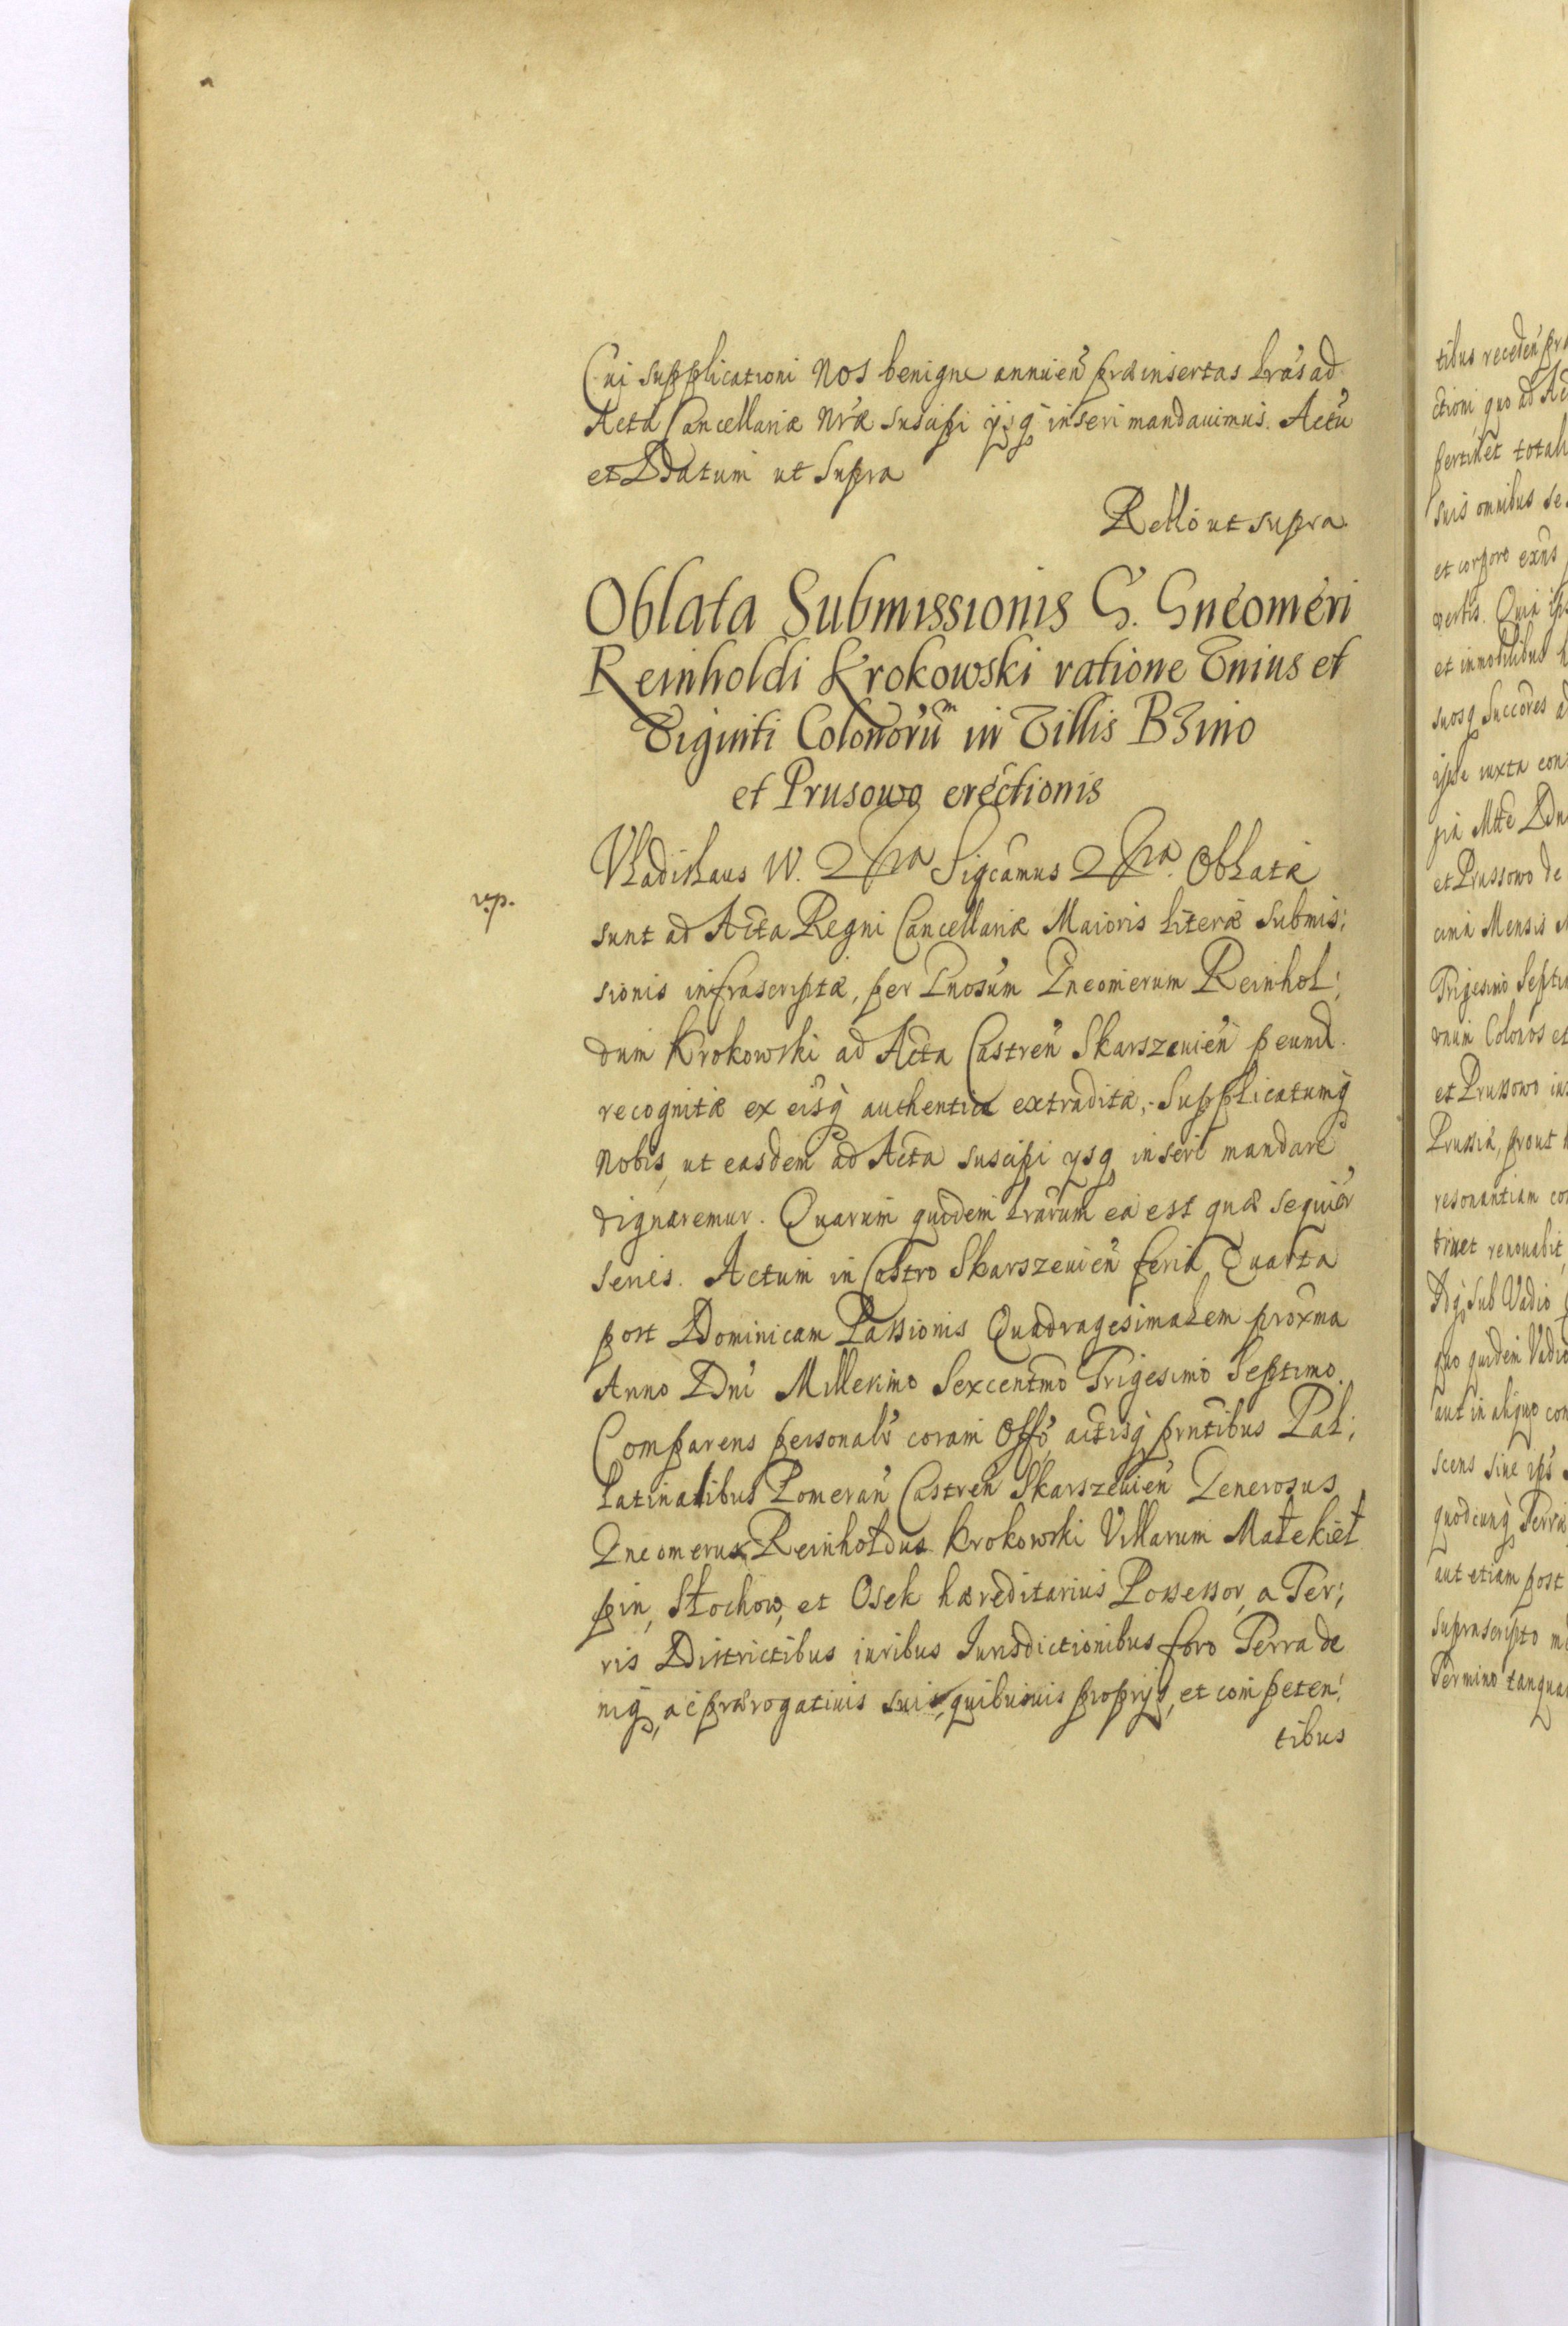 Cui supplicationi Nos benigne annueñ præinsertas lrãs ad
Acta Cancellariæ Nræ suscipi ijsq̃ inseri mandauimus. Actũ
et Ddatum ut supra
Rello ut supra
Oblata Submissionis G. Gneomeri
Reinholdi Krokowski ratione Vnius et
Viginti Colonorũm in Villis Bzino
et Prusowo erectionis
Vladislaus IV. Sigcamus Oblatæ
rep.
sunt ad Acta Regni Cancellariæ Maioris literæ submis:
sionis infrascriptæ, per Gnosum Gneomerum Reinhol:
dum Krokowski ad Acta Castreñ Skarszeuieñ p eund.
recognitæ ex eisq̃ authenticæ extraditæ, Supplicatumq̃
Nobis, ut easdem ad Acta suscipi ysq̃ inseri mandare
dignaremur. Quarum quidem lrarum ea est quæ sequir̃
series. Actum in Castro Skarszeuieñ feria Quarta
post Dominicam Passionis Quadragesimalem proxma
Anno Dni Millesimo Sexcentmo Trigesimo Septimo.
Comparens personalr̃ coram Offõ, actisq̃ pñtibus Pal:
latinalibus Pomerañ Castreñ Skarszeuieñ Generosus
Gneomerus Reinholdus Krokowski Villarum Małekiet
pin, Słochow, et Osek hæreditarius Possessor, a Ter:
ris Districtibus iuribus Iurisdictionibus foro Terra de
niq̃, ac prærogatiuis suis, quibusuis proprijs, et competen:
tibus
tibus receden
ctioni, quo ad
pertinet
suis omnibus se
et corpore
verbis. Quia
et inmobilibus
suosq̃ Succores
ipse iuxta con
et Prussowo de
Mensis
Trigesimo Septi
vnum Colonos et
et Prussowo
Prussia, prout
resonantiam
renouabit
sub Vadio
quo quidem Vadio
aut in aliquo con
scens sine
quodcunq̃ Terræ
aut etiam post
suprascripto
Termino tanquam